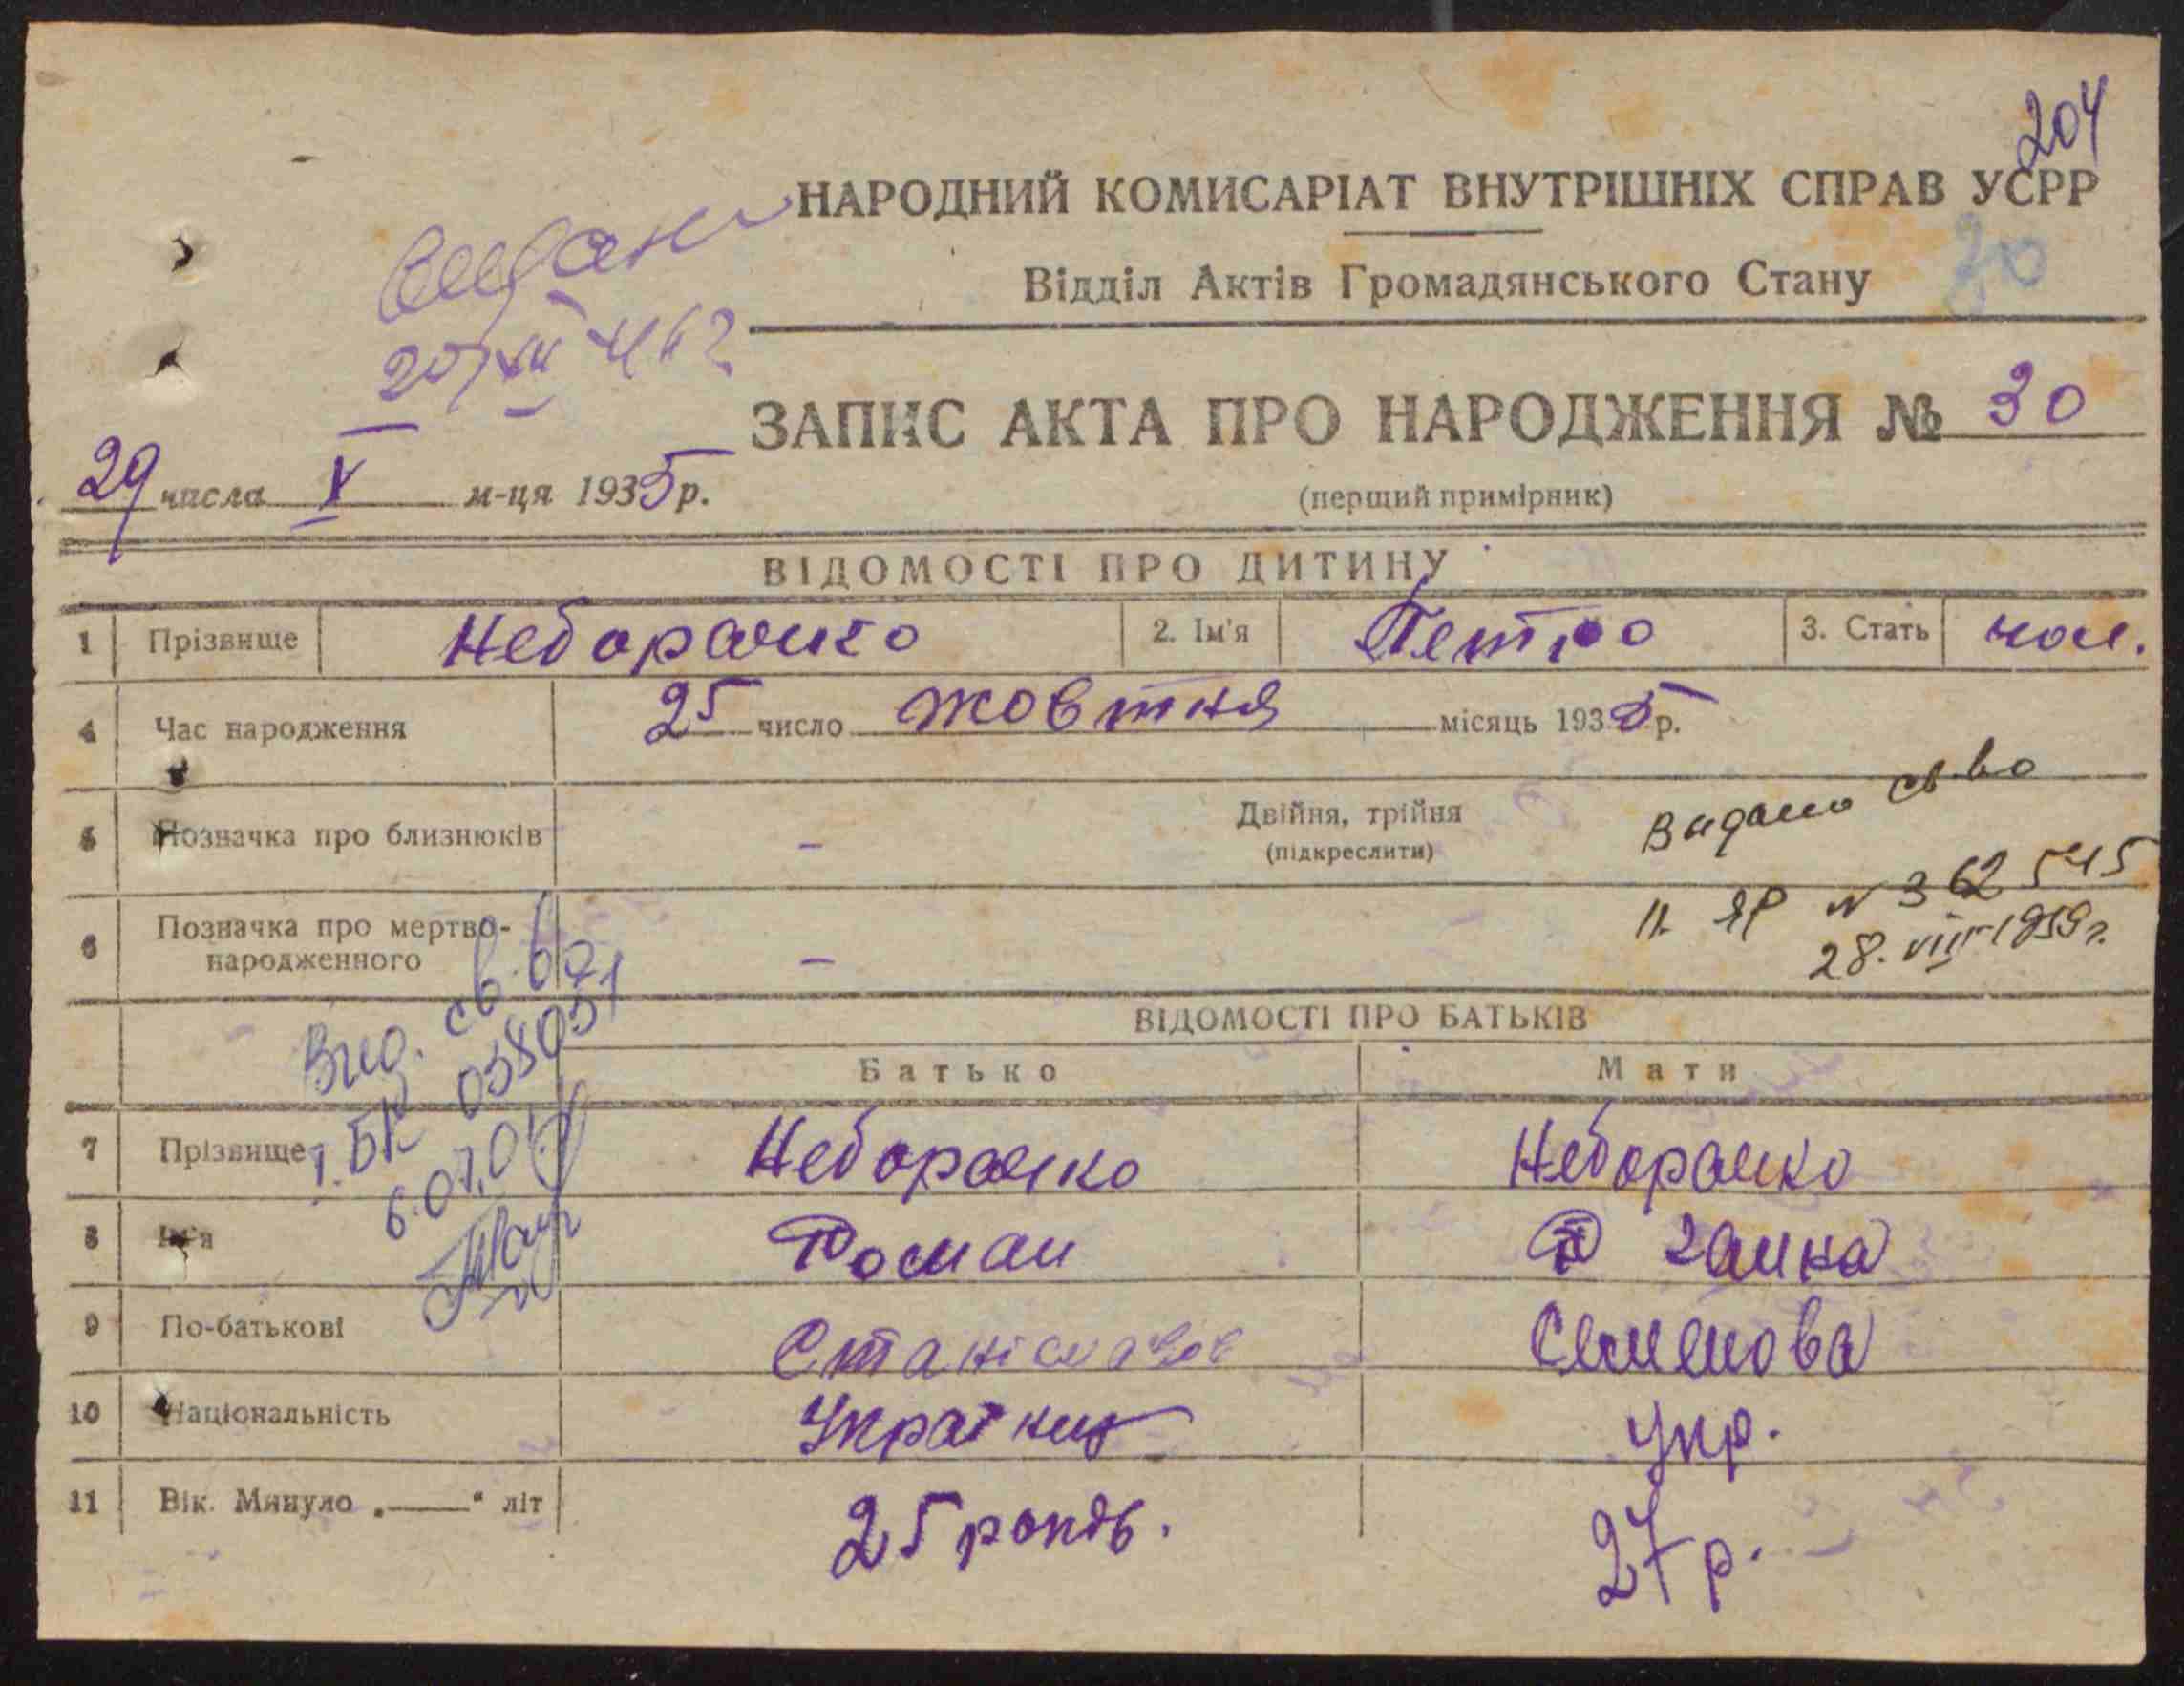 204
НАРОДНИЙ КОМИСАРІАТ ВНУТРІШНІХ СПРАВ УСРР
Відділ Актів Громадянського Стану 30
Видан
ЗАПИС АКТА ПРО НАРОДЖЕННЯ № 30
29 числа X м-ця 1935 р.
(перщий примірник)
ВІДОМОСТІ ПРО ДИТИНУ
1 Прізвище Неборачко 2. Ім'я Петро 3. Стать чол.
4 Час народження 25 число жовтня місяць 1935 р.
5 Позначка про близнюків - Двійня, трійня
(підкреслити)
Видано св-во
II ЯР № 362545
28. VIII 1959 г.
6 Позначка про мертво-
народженного -
Вид. св-во
І. БК 038051
6.07.04
ВІДОМОСТІ ПРО БАТЬКІВ
Батько Мати
7 Прізвище Неборачко Неборачко
8 Ім'я Роман Ганна
9 По-батькові Станіславов Семенова
10 Національність Українец Укр.
11 Вік. Минуло „——“ літ 25 років. 27 р.